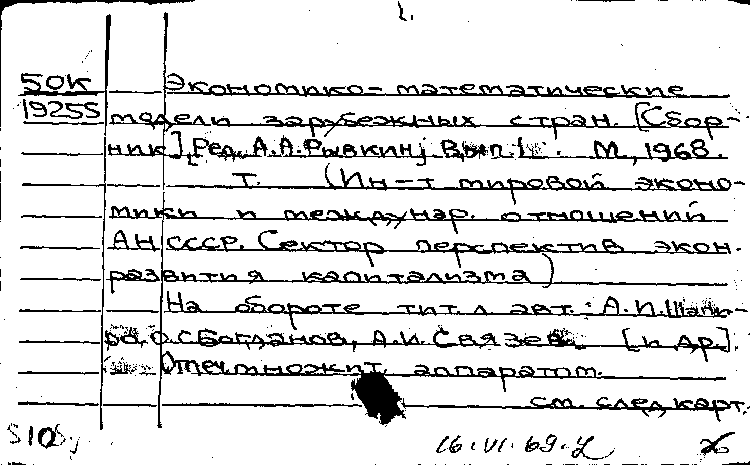 1.
50К Экономико-математические
1925S модели зарубежных стран. [Сбор-
ник], [Ред. А.А.Рывкин]. Вып.1 . М., 1968.
т. (Ин-т мировой эконо-
мики и междунар. отношений
АН СССР. Сектор перспектив экон.
развития капитализма)
На обороте тит.л. авт.: А.И.Шапи-
ро, О.С.Богданов, А.И. [и др.].
Отеч. множит. аппаратом.
см. след. карт.
16.VI.69.